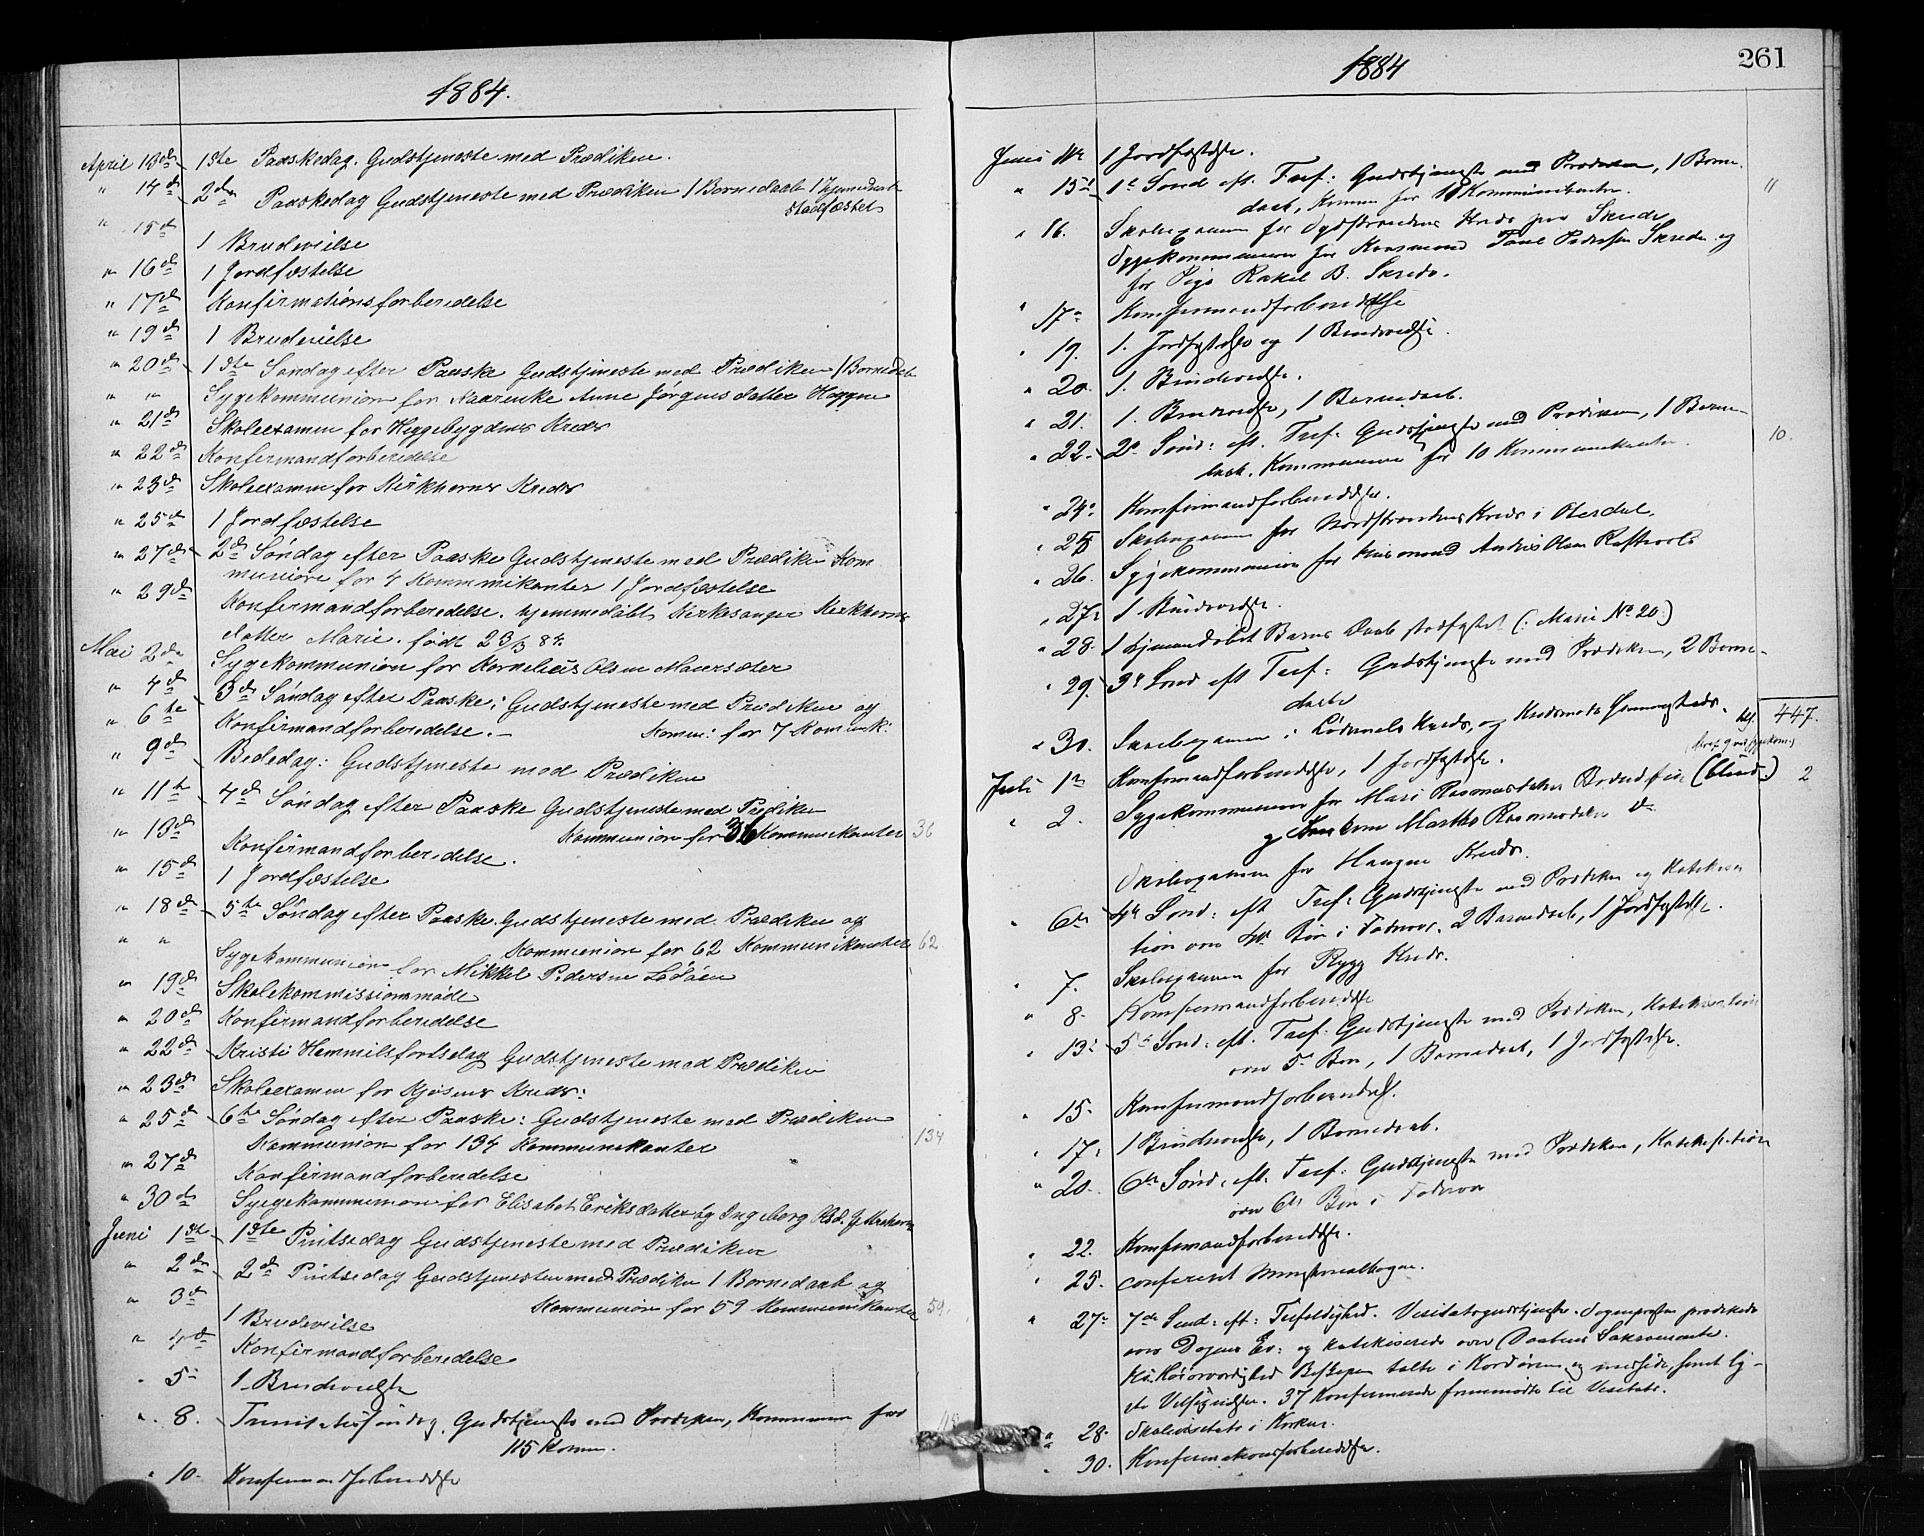 1884.
April 13de 1ste Paaskedag. Gudstjeneste med Prædiken.
" 14de 2den Paaskedag Gudstjeneste med Prædiken 1 Barnedaab 1 hjemmedaab
stadfæstet
" 15de 1 Brudevielse
" 16de 1 Jordfæstelse
" 17de Konfirmationsforberedelse
" 19de 1 Brudevielse
" 20de 1ste Søndag efter Paaske Gudstjeneste med Prædiken 1 Barnedaab
" " Sygekommunion for Anne Jørgensdatter
" 21de Skoleexamen for Heggebygdens Kreds
" 22de Konfirmandforberedelse
" 23de Skoleexamen for Kirkhorns Kreds
" 25de 1 Jordfæstelse
" 27de 2de Søndag efter Paaske Gudstjeneste med Prædiken Kom
munion for 4 Kommunikanter 1 Jordfæstelse
" 29de Konfirmandforberedelse. hjemmedøbt Kirkesanger Kirkhorns
datter Marie. født 23/3 84.
Mai 2den Sygekommunion for Kornelius Olsen
" 4de 3de Søndag efter Paaske: Gudstjeneste med Prædiken og
Komm: for 7 Komunk:
" 6te Konfirmandforberedelse. –
" 9de Bededag: Gudstjeneste med Prædiken
" 11te 4de Søndag efter Paaske Gudstjeneste med Prædiken
Kommunion for 36 Kommunikanter 36
" 13de Konfirmandforberedelse.
" 15de 1 Jordfæstelse
" 18de 5te Søndag efter Paaske. Gudstjeneste med Prædiken og
Kommunion for 62 Kommunikanter 62
" " Sygekommunion for Mikkel Pedersen
" 19de Skolekommissionsmøde
" 20de Konfirmandforberedelse
" 22de Kristi Himmelfartsdag Gudstjeneste med Prædiken
" 23de Skoleexamen for Kjøsens Kreds:
" 25de 6te Søndag efter Paaske: Gudstjeneste med Prædiken
Kommunion for 134 Kommunikanter 134
" 27de Konfirmandforberedelse
" 30de Sygekommunion for Elisabet Eriksdatter og Ingeborg Olsd.
Juni 1ste 1ste Pintsedag Gudstjeneste med Prædiken
" 2den 2de Pintsedag Gudstjeneste med Prædiken 1 Barnedaab og
Kommunion for 59 Kommunikanter 59.
" 3de 1 Brudevielse
" 4de Konfirmandforberedelse
" 5 1 Brudevielse
" 8. Trinitatissøndag. Gudstjeneste med Prædiken, Kommunion for
115 Komm.
" 10. Konfirmandforberedelse
1884
261
Juni 1 Jordfæstelse.
" 15de 1ste Sønd. eft. Tref: Gudstjeneste med Prædiken, 1 Barne-
daab, Komm. for 11 Kommunikanter. 11
" 16. Skoleexamen for Sydstrandens Kreds paa Skrede
Sygekommunion for Peder og
for Pige Rakel B. Skrede.
" 17. Konfirmandforberedelse
" 19. 1. Jordfæstelse og 1 Brudevielse.
" 20. 1. Brudevielse.
" 21. 1. Brudevielse, 1 Barnedaab.
" 22. 2. Sønd: eft. Tref: Gudstjeneste med Prædiken, 1 Barne-
daab. Kommunion for 10 Kommunikanter. 10.
" 24. Konfirmandforberedelse.
" 25 Skoleexamen for Nordstrandens Kreds i Herdal.
" 26. Sygekommunion for Husmand Olsen
" 27. 1 Brudevielse.
" 28. 1 hjemmedøbt Barns Daab stadfæstet (: Marie No 20.)
" 29. 3. Sønd eft Tref: Gudstjeneste med Prædiken, 2 Barne-
daab
" 30. Skoleexamen i Kreds, og 447.
Juli 1 Konfirmandforberedelse, 1 Jordfæstelse.
" 2. Sygekommunion for Mari Rasmusdatter (blind.) 2
og Martha Rasmusdatter
Skoleexamen for Kreds.
" 6te 4de Sønd: eft Tref: Gudstjeneste med Prædiken og Katekisa
tion over 4de Bøn i Fadervor. 2 Barnedaab, 1 Jordfæstelse.
" 7. Skoleexamen for Rygg Kreds.
" 8. Konfirmandforberedelse
" 13. 5 Sønd: eft. Tref: Gudstjeneste med Prædiken, Katekisation
over 5 Bøn, 1 Barnedaab, 1 Jordfæstelse.
" 15. Konfirmandforberedels.
" 17. 1 Brudevielse, 1 Barnedaab.
" 20. 6te Sønd. eft. Tref: Gudstjeneste med Prædiken, Katekisation
over 6te Bøn i Fadervor
" 22. Konfirmandforberedelse.
" 25. conferert Ministerialbogen.
" 27. 7de Sønd: eft: Trefoldighed. Visitatsgudstjeneste. Sognepræsten prædikede
over Dagens Ev: og katekiserede over Daabens Sakramente.
Hs. Høiærværdighed Biskopen talte i Kordøren og
37 Konfirmerede fremmødte til Visitats.
" 28. Skolevisitats i Kirken.
" 30. Konfirmationsforberedelse.